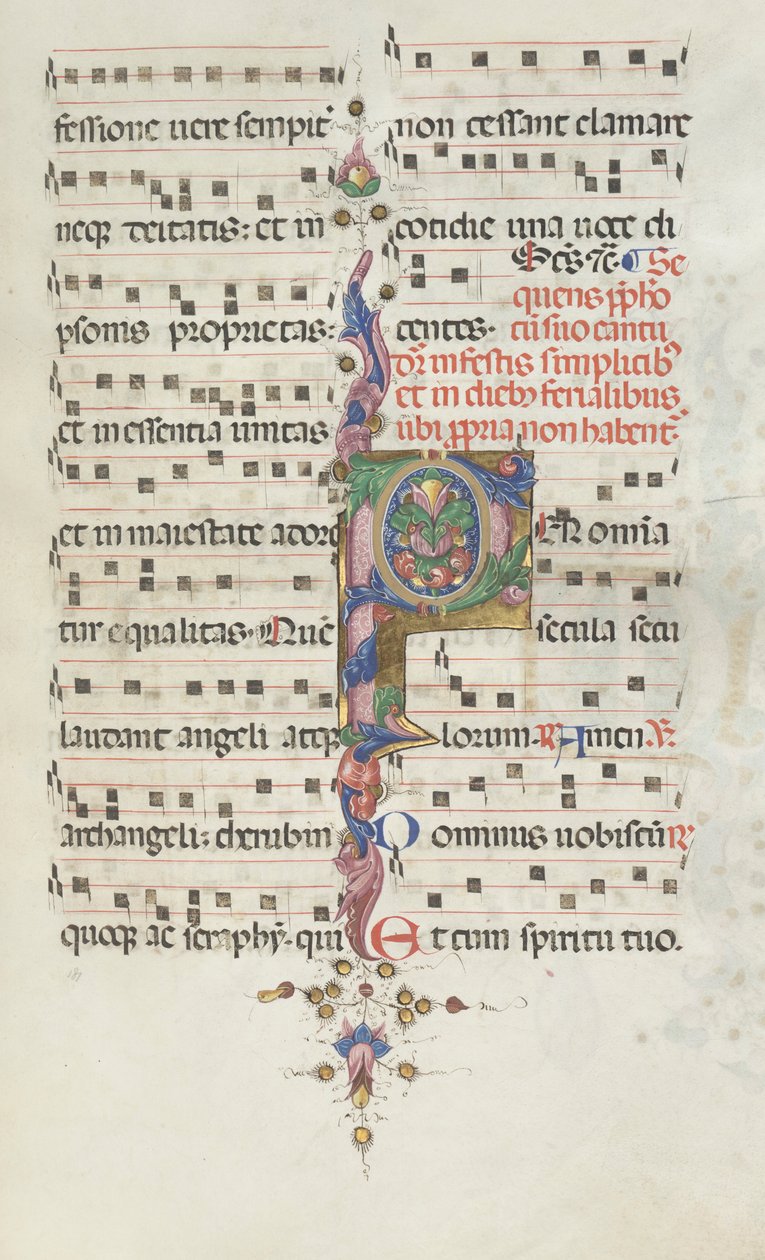 fessione uere sempit̄
neqꝫ deitatis: et in
psonis proprietas:
et in essentia unitas
et in maiestate ador
tur equalitas. Quē
laudant angeli atqꝫ
archangeli: cherubin
quoqꝫ ac seraphȳ. qui
187
non cessant clamare
cotidie una uoce di
centes. Sc̄s ꝛc̄. Se
quens p̄pħo
cū suo cantu
dr̄ in festis simplicibꝫ
et in diebꝫ ferialibus
ubi ꝓpria non habent᷑
PER omnia
secula secu
lorum. ℟ Amen ℣
Dominus uobiscū ℟
Et cum spiritu tuo.